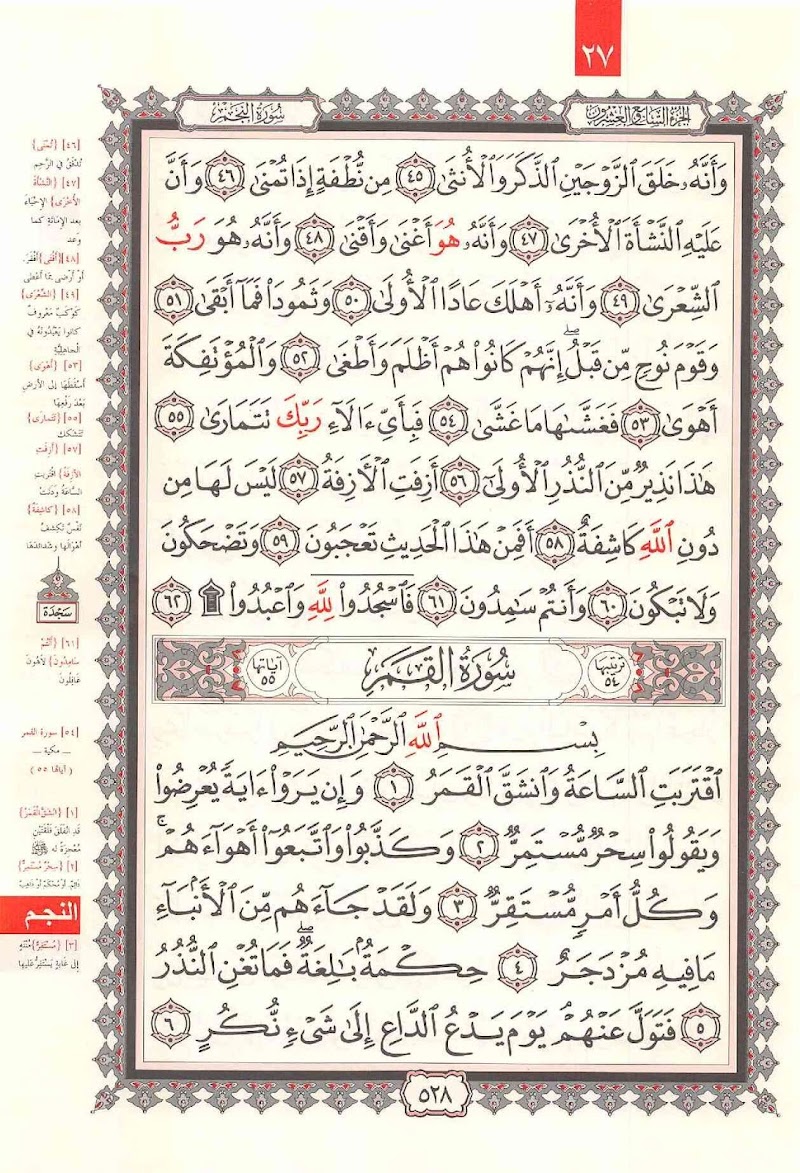 ٢٧
الجزء السابع والعشرون
سورة النجم
وَأَنَّهُۥ خَلَقَ ٱلزَّوْجَيْنِ ٱلذَّكَرَ وَٱلْأُنثَىٰ ٤٥ مِن نُّطْفَةٍ إِذَا تُمْنَىٰ ٤٦ وَأَنَّ
عَلَيْهِ ٱلنَّشْأَةَ ٱلْأُخْرَىٰ ٤٧ وَأَنَّهُۥ هُوَ أَغْنَىٰ وَأَقْنَىٰ ٤٨ وَأَنَّهُۥ هُوَ رَبُّ
ٱلشِّعْرَىٰ ٤٩ وَأَنَّهُۥٓ أَهْلَكَ عَادًا ٱلْأُولَىٰ ٥٠ وَثَمُودَا۟ فَمَآ أَبْقَىٰ ٥١
وَقَوْمَ نُوحٍ مِّن قَبْلُ ۖ إِنَّهُمْ كَانُوا۟ هُمْ أَظْلَمَ وَأَطْغَىٰ ٥٢ وَٱلْمُؤْتَفِكَةَ
أَهْوَىٰ ٥٣ فَغَشَّىٰهَا مَا غَشَّىٰ ٥٤ فَبِأَىِّ ءَالَآءِ رَبِّكَ تَتَمَارَىٰ ٥٥
هَٰذَا نَذِيرٌ مِّنَ ٱلنُّذُرِ ٱلْأُولَىٰٓ ٥٦ أَزِفَتِ ٱلْءَازِفَةُ ٥٧ لَيْسَ لَهَا مِن
دُونِ ٱللَّهِ كَاشِفَةٌ ٥٨ أَفَمِنْ هَٰذَا ٱلْحَدِيثِ تَعْجَبُونَ ٥٩ وَتَضْحَكُونَ
وَلَا تَبْكُونَ ٦٠ وَأَنتُمْ سَٰمِدُونَ ٦١ فَٱسْجُدُوا۟ لِلَّهِ وَٱعْبُدُوا۟ ۩ ٦٢
ترتيبها ٥٤ سورة القمر آياتها ٥٥
بِسْمِ ٱللَّهِ ٱلرَّحْمَٰنِ ٱلرَّحِيمِ
ٱقْتَرَبَتِ ٱلسَّاعَةُ وَٱنشَقَّ ٱلْقَمَرُ ١ وَإِن يَرَوْا۟ ءَايَةً يُعْرِضُوا۟
وَيَقُولُوا۟ سِحْرٌ مُّسْتَمِرٌّ ٢ وَكَذَّبُوا۟ وَٱتَّبَعُوٓا۟ أَهْوَآءَهُمْ ۚ
وَكُلُّ أَمْرٍ مُّسْتَقِرٌّ ٣ وَلَقَدْ جَآءَهُم مِّنَ ٱلْأَنۢبَآءِ
مَا فِيهِ مُزْدَجَرٌ ٤ حِكْمَةٌۢ بَٰلِغَةٌ ۖ فَمَا تُغْنِ ٱلنُّذُرُ
٥ فَتَوَلَّ عَنْهُمْ ۘ يَوْمَ يَدْعُ ٱلدَّاعِ إِلَىٰ شَىْءٍ نُّكُرٍ ٦
٥٢٨
[٤٦] {تُمْنَى}
تُدَفَّقُ فِي الرَّحِمِ
[٤٧] {النَّشْأَةَ
الأُخْرَى} الإِحْيَاءَ
بعد الإِمَاتَةِ كما
وَعد
[٤٨] {أَقْنَى} أَفْقَرَ
أَوْ أَرْضَى بِمَا أَعْطَى
[٤٩] {الشِّعْرَى}
كَوْكَبٌ مَعْرُوفٌ
كانوا يَعْبُدُونَهُ في
الجَاهِلِيَّةِ
[٥٣] {أَهْوَى}
أَسْقَطَهَا إِلى الأَرْضِ
بَعْدَ رَفْعِهَا
[٥٥] {تَتَمَارَى}
تَتَشَكَّكُ
[٥٧] {أَزِفَتِ
الآزِفَةُ} اقْتَرَبَتِ
السَّاعَةُ وَدَنَتْ
[٥٨] {كَاشِفَةٌ}
نَفْسٌ تَكْشِفُ
أَهْوَالَهَا وشَدَائِدَهَا
سَجْدَة
[٦١] {أَنْتُمْ
سَامِدُونَ} لاَهُونَ
غَافِلُونَ
[٥٤] سورة القمر
— مكية —
(آياتها ٥٥)
[١] {انْشَقَّ الْقَمَرُ}
قد انْفَلَقَ فَلْقَتَيْنِ
مُعْجِزَةً له ﷺ
[٢] {سِحْرٌ مُسْتَمِرٌّ}
دَائِمٌ، أَوْ مُحْكَمٌ أَوْ ذَاهِبٌ
النجم
[٣] {مُسْتَقِرٌّ} مُنْتَهٍ
إِلى غَايَةٍ يَسْتَقِرُّ عَلَيها